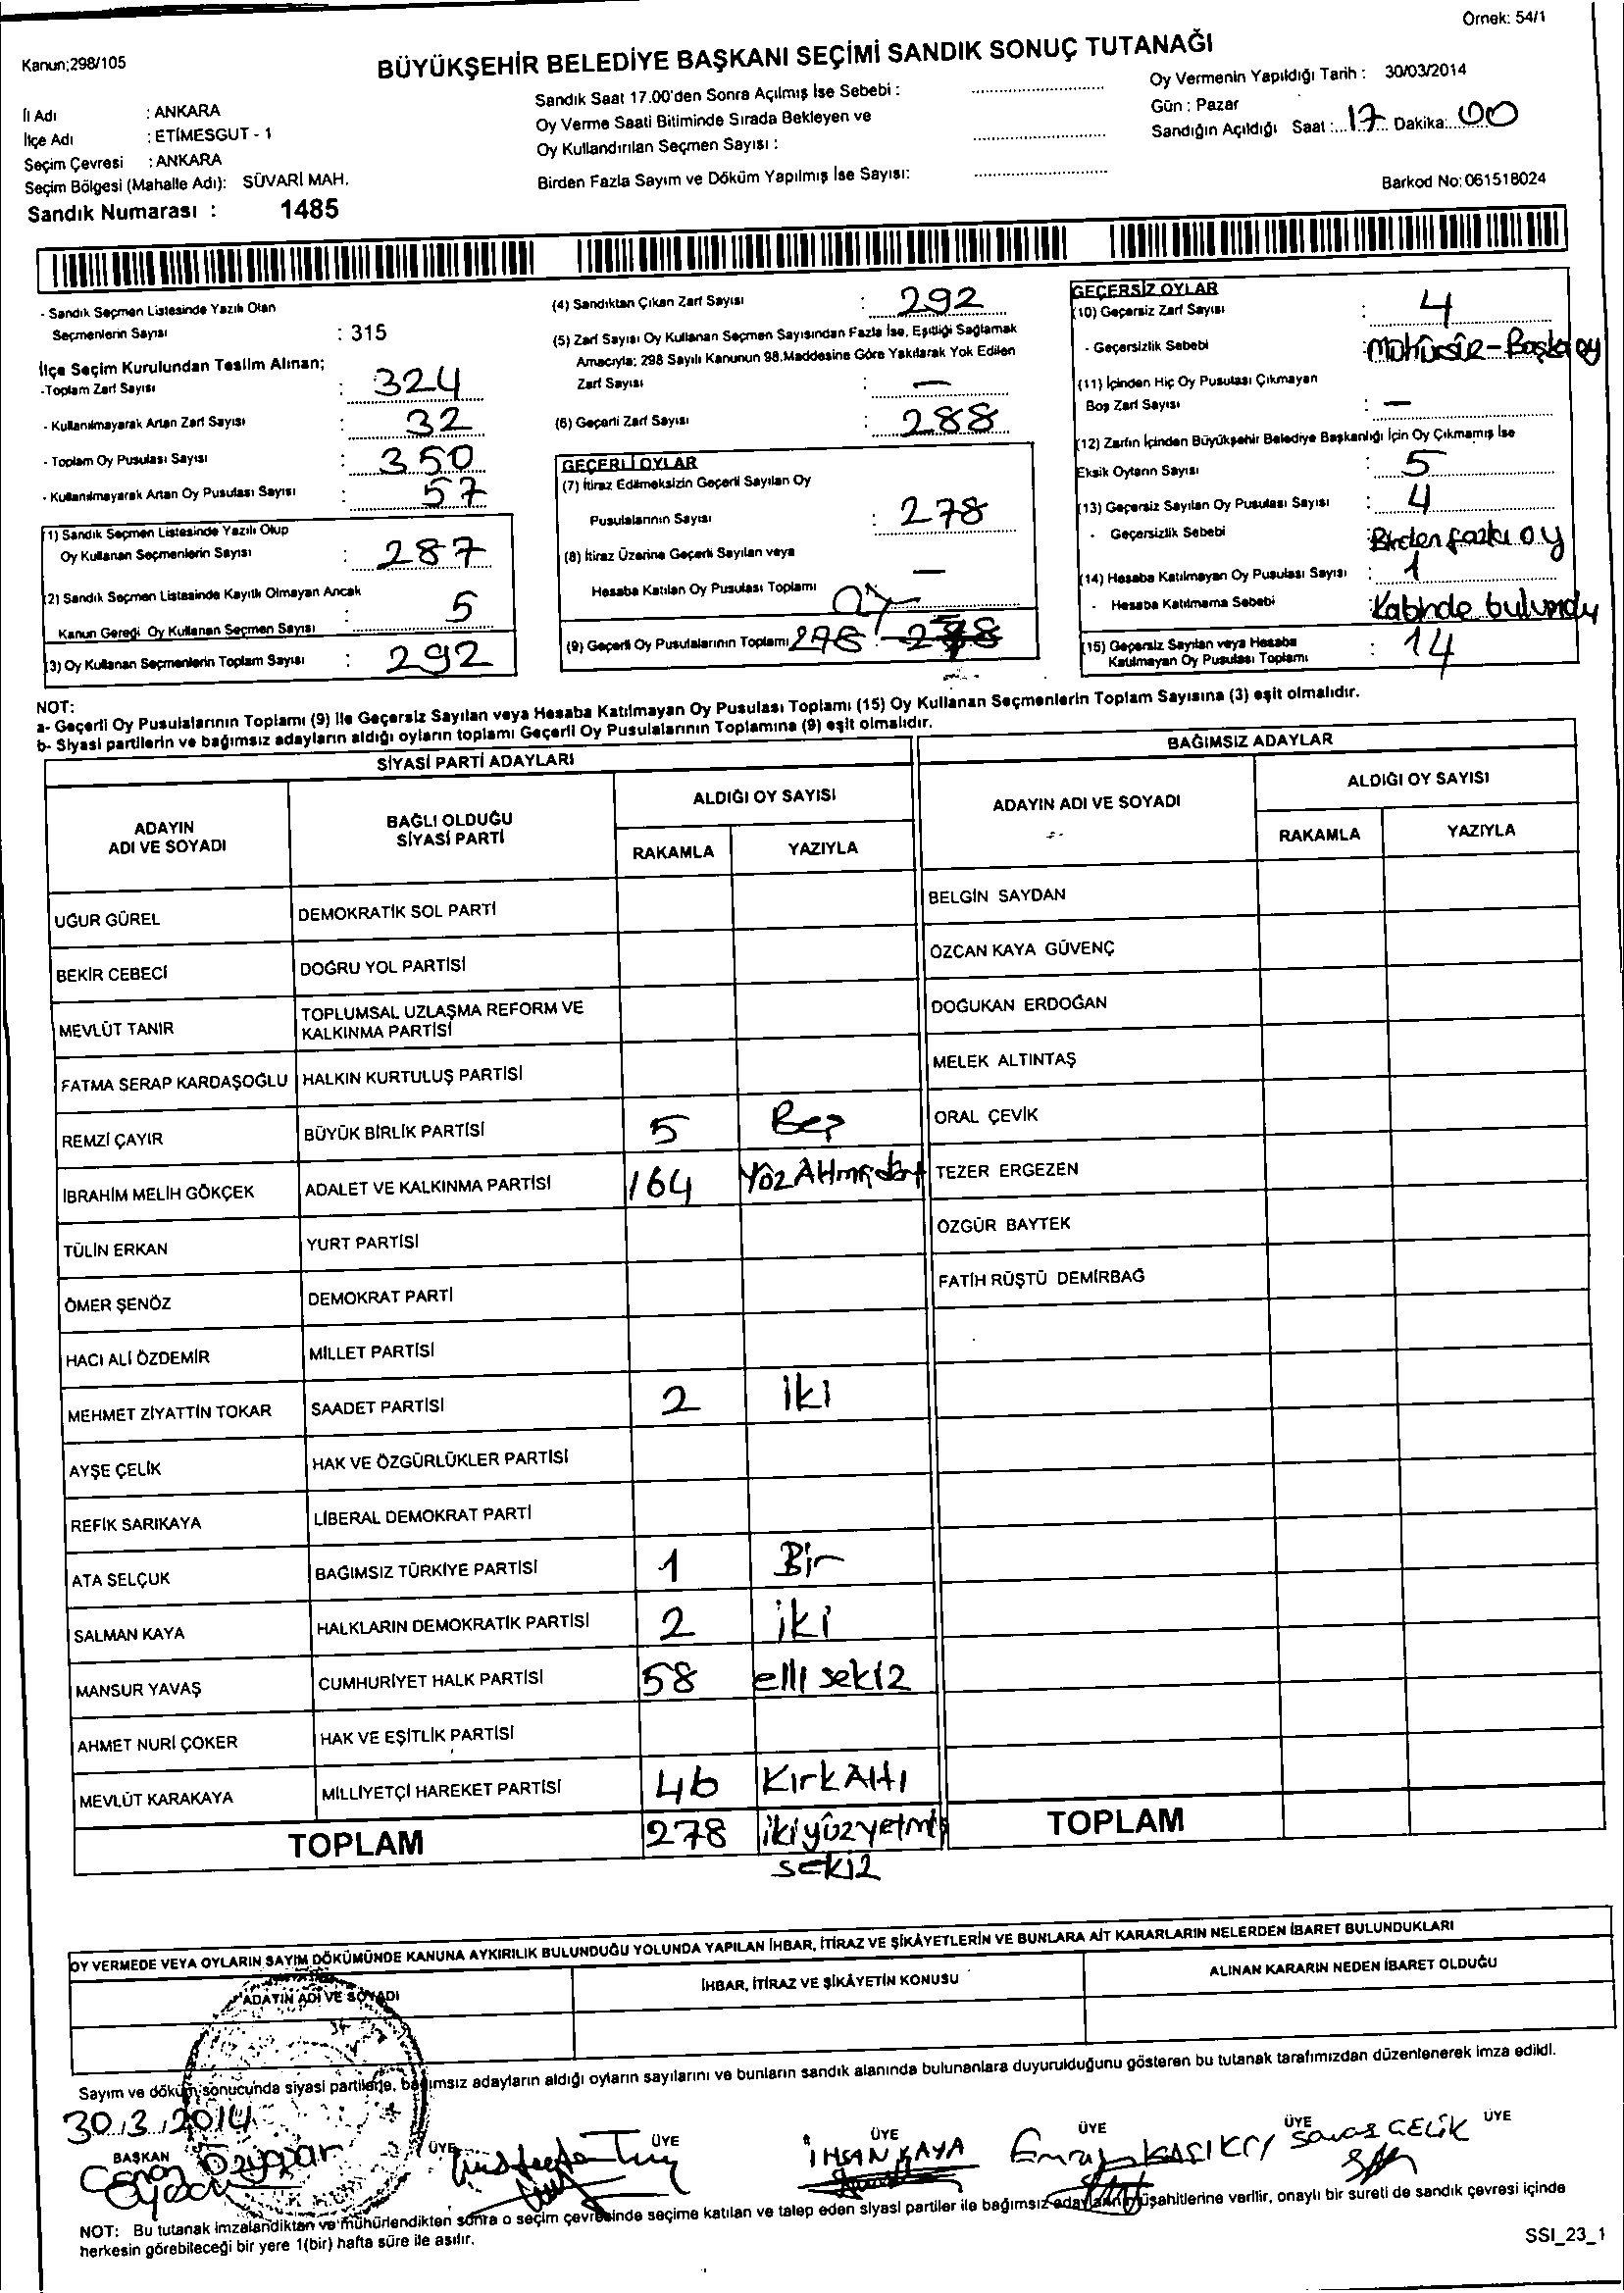 Örnek: 54/1
Kanun;298/105
BÜYÜKŞEHİR BELEDİYE BAŞKANI SEÇİMİ SANDIK SONUÇ TUTANAĞI
İl Adı : ANKARA
İlçe Adı : ETİMESGUT - 1
Seçim Çevresi : ANKARA
Seçim Bölgesi (Mahalle Adı): SÜVARİ MAH.
Sandık Numarası : 1485
Sandık Saat 17.00'den Sonra Açılmış İse Sebebi :
Oy Verme Saati Bitiminde Sırada Bekleyen ve
Oy Kullandırılan Seçmen Sayısı :
Birden Fazla Sayım ve Döküm Yapılmış İse Sayısı:
Oy Vermenin Yapıldığı Tarih : 30/03/2014
Gün : Pazar
Sandığın Açıldığı Saat : 17 Dakika: 00
Barkod No: 061518024
- Sandık Seçmen Listesinde Yazılı Olan
Seçmenlerin Sayısı : 315
İlçe Seçim Kurulundan Teslim Alınan;
-Toplam Zarf Sayısı : 324
- Kullanılmayarak Artan Zarf Sayısı : 32
- Toplam Oy Pusulası Sayısı : 350
- Kullanılmayarak Artan Oy Pusulası Sayısı : 57
(1) Sandık Seçmen Listesinde Yazılı Olup
Oy Kullanan Seçmenlerin Sayısı : 287
(2) Sandık Seçmen Listesinde Kayıtlı Olmayan Ancak
Kanun Gereği Oy Kullanan Seçmen Sayısı : 5
(3) Oy Kullanan Seçmenlerin Toplam Sayısı : 292
(4) Sandıktan Çıkan Zarf Sayısı : 292
(5) Zarf Sayısı Oy Kullanan Seçmen Sayısından Fazla İse, Eşitliği Sağlamak
Amacıyla; 298 Sayılı Kanunun 98.Maddesine Göre Yakılarak Yok Edilen
Zarf Sayısı : —
(6) Geçerli Zarf Sayısı : 288
GEÇERLİ OYLAR
(7) İtiraz Edilmeksizin Geçerli Sayılan Oy
Pusulalarının Sayısı : 278
(8) İtiraz Üzerine Geçerli Sayılan veya
Hesaba Katılan Oy Pusulası Toplamı —
(9) Geçerli Oy Pusulalarının Toplamı 278
GEÇERSİZ OYLAR
(10) Geçersiz Zarf Sayısı : 4
- Geçersizlik Sebebi : Mühürsüz-Başka oy
(11) İçinden Hiç Oy Pusulası Çıkmayan
Boş Zarf Sayısı : —
(12) Zarfın İçinden Büyükşehir Belediye Başkanlığı İçin Oy Çıkmamış İse
Eksik Oyların Sayısı : 5
(13) Geçersiz Sayılan Oy Pusulası Sayısı : 4
- Geçersizlik Sebebi : Birden fazla oy
(14) Hesaba Katılmayan Oy Pusulası Sayısı : 1
- Hesaba Katılmama Sebebi : Kabinde bulundu
(15) Geçersiz Sayılan veya Hesaba
Katılmayan Oy Pusulası Toplamı : 14
NOT:
a- Geçerli Oy Pusulalarının Toplamı (9) ile Geçersiz Sayılan veya Hesaba Katılmayan Oy Pusulası Toplamı (15) Oy Kullanan Seçmenlerin Toplam Sayısına (3) eşit olmalıdır.
b- Siyasi partilerin ve bağımsız adayların aldığı oyların toplamı Geçerli Oy Pusulalarının Toplamına (9) eşit olmalıdır.
SİYASİ PARTİ ADAYLARI
ADAYIN ADI VE SOYADI
BAĞLI OLDUĞU SİYASİ PARTİ
ALDIĞI OY SAYISI
RAKAMLA YAZIYLA
UĞUR GÜREL DEMOKRATİK SOL PARTİ
BEKİR CEBECİ DOĞRU YOL PARTİSİ
MEVLÜT TANIR TOPLUMSAL UZLAŞMA REFORM VE KALKINMA PARTİSİ
FATMA SERAP KARDAŞOĞLU HALKIN KURTULUŞ PARTİSİ
REMZİ ÇAYIR BÜYÜK BİRLİK PARTİSİ 5 Beş
İBRAHİM MELİH GÖKÇEK ADALET VE KALKINMA PARTİSİ 164 YüzAltmışdört
TÜLİN ERKAN YURT PARTİSİ
ÖMER ŞENÖZ DEMOKRAT PARTİ
HACI ALİ ÖZDEMİR MİLLET PARTİSİ
MEHMET ZİYATTİN TOKAR SAADET PARTİSİ 2 iki
AYŞE ÇELİK HAK VE ÖZGÜRLÜKLER PARTİSİ
REFİK SARIKAYA LİBERAL DEMOKRAT PARTİ
ATA SELÇUK BAĞIMSIZ TÜRKİYE PARTİSİ 1 Bir
SALMAN KAYA HALKLARIN DEMOKRATİK PARTİSİ 2 iki
MANSUR YAVAŞ CUMHURİYET HALK PARTİSİ 58 elli sekiz
AHMET NURİ ÇOKER HAK VE EŞİTLİK PARTİSİ
MEVLÜT KARAKAYA MİLLİYETÇİ HAREKET PARTİSİ 46 KırkAltı
TOPLAM 278 ikiyüzyetmiş
sekiz
BAĞIMSIZ ADAYLAR
ADAYIN ADI VE SOYADI
ALDIĞI OY SAYISI
RAKAMLA YAZIYLA
BELGİN SAYDAN
ÖZCAN KAYA GÜVENÇ
DOĞUKAN ERDOĞAN
MELEK ALTINTAŞ
ORAL ÇEVİK
TEZER ERGEZEN
ÖZGÜR BAYTEK
FATİH RÜŞTÜ DEMİRBAĞ
TOPLAM
OY VERMEDE VEYA OYLARIN SAYIM DÖKÜMÜNDE KANUNA AYKIRILIK BULUNDUĞU YOLUNDA YAPILAN İHBAR, İTİRAZ VE ŞİKÂYETLERİN VE BUNLARA AİT KARARLARIN NELERDEN İBARET BULUNDUKLARI
ADAYIN ADI VE SOYADI
İHBAR, İTİRAZ VE ŞİKÂYETİN KONUSU
ALINAN KARARIN NEDEN İBARET OLDUĞU
Sayım ve döküm sonucunda siyasi partilerle, bağımsız adayların aldığı oyların sayılarını ve bunların sandık alanında bulunanlara duyurulduğunu gösteren bu tutanak tarafımızdan düzenlenerek imza edildi.
30.3.2014
BAŞKAN ÜYE ÜYE ÜYE ÜYE ÜYE ÜYE
İHSAN KAYA
Savaş ÇELİK
NOT: Bu tutanak imzalandıktan ve mühürlendikten sonra o seçim çevresinde seçime katılan ve talep eden siyasi partiler ile bağımsız adayların müşahitlerine verilir, onaylı bir sureti de sandık çevresi içinde
herkesin görebileceği bir yere 1(bir) hafta süre ile asılır.
SSI_23_1